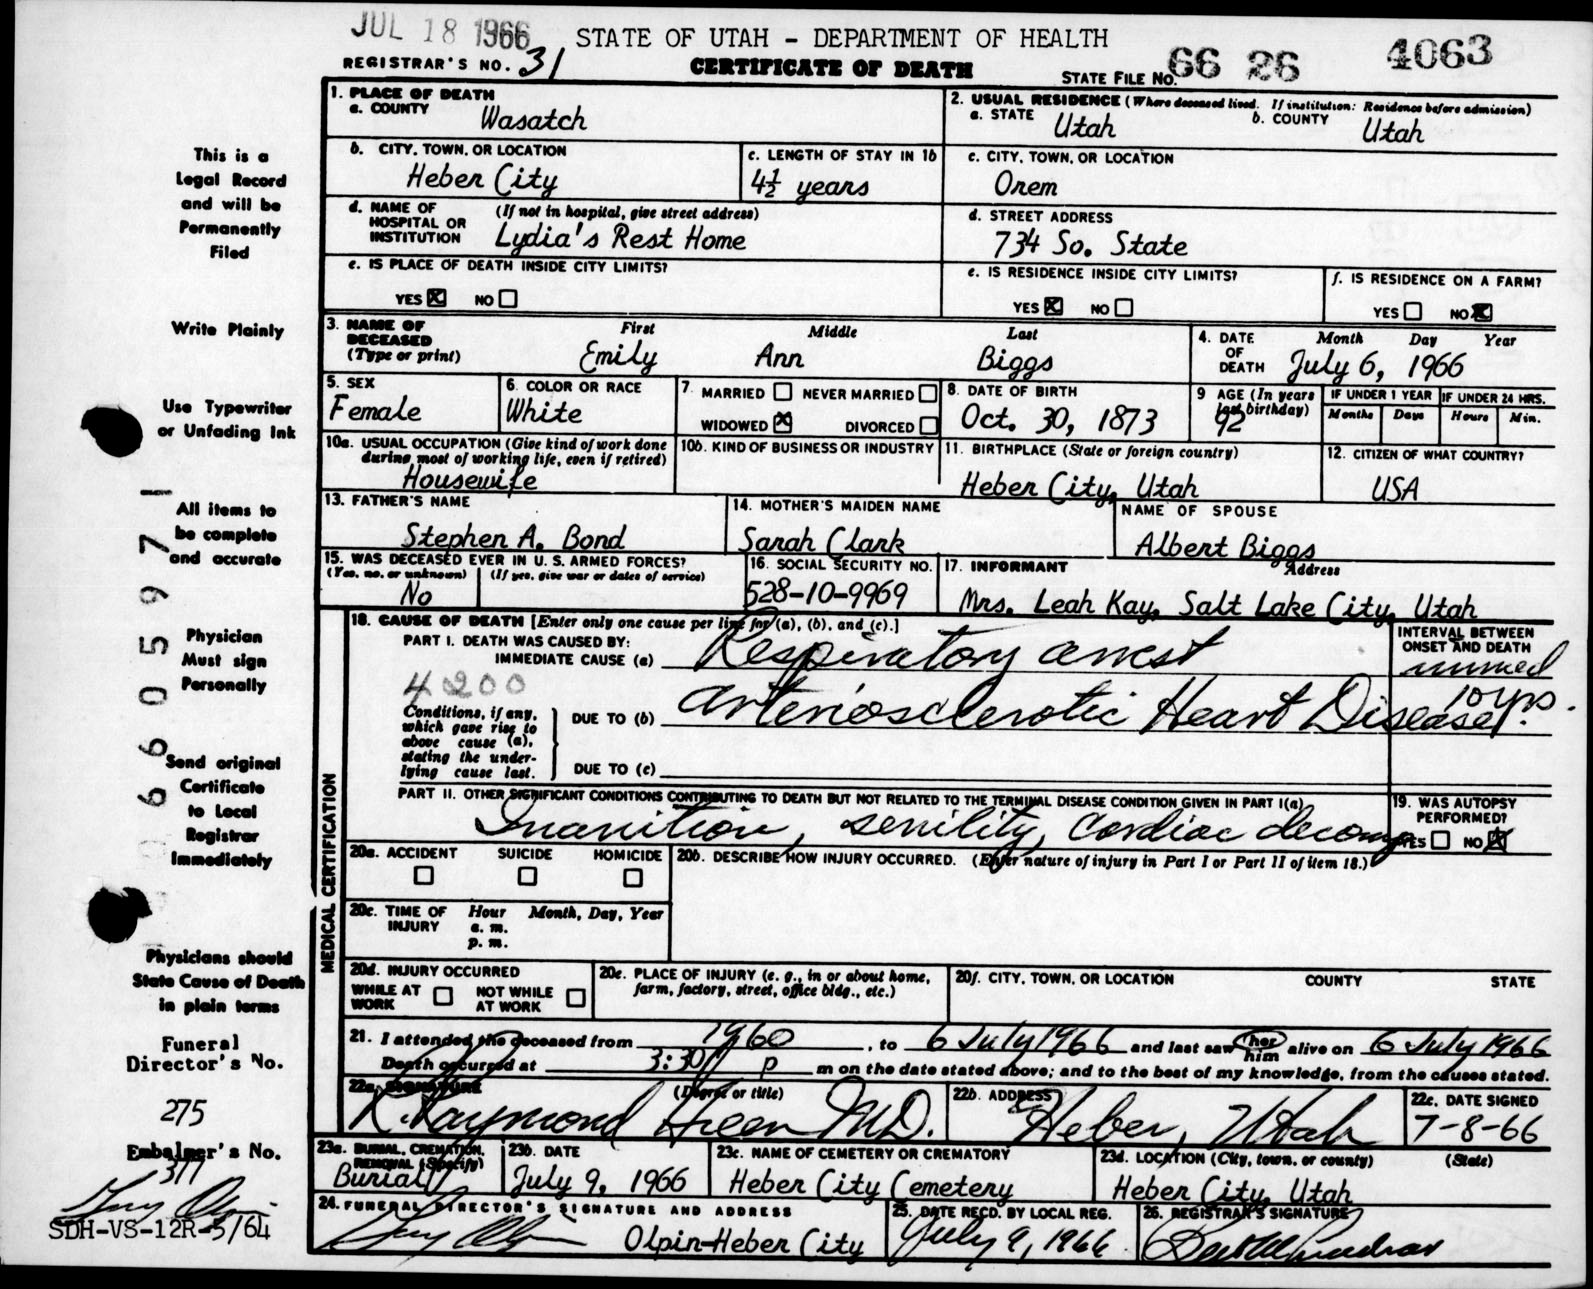 JUL 18 1966
STATE OF UTAH - DEPARTMENT OF HEALTH
REGISTRAR'S NO. 31
CERTIFICATE OF DEATH
STATE FILE NO. 66 26 4063
This is a
Legal Record
and will be
Permanently
Filed
Write Plainly
Use Typewriter
or Unfading Ink
All items to
be complete
and accurate
Physician
Must sign
Personally
Send original
Certificate
to Local
Registrar
Immediately
Physicians should
State Cause of Death
in plain terms
Funeral
Director's No.
275
Embalmer's No.
377
SDH-VS-12R-5/64
1. PLACE OF DEATH
a. COUNTY Wasatch
2. USUAL RESIDENCE (Where deceased lived. If institution: Residence before admission)
a. STATE Utah b. COUNTY Utah
b. CITY, TOWN, OR LOCATION Heber City
c. LENGTH OF STAY IN 1b 4½ years
c. CITY, TOWN, OR LOCATION Orem
d. NAME OF HOSPITAL OR INSTITUTION (If not in hospital, give street address) Lydia's Rest Home
d. STREET ADDRESS 734 So. State
e. IS PLACE OF DEATH INSIDE CITY LIMITS?
YES NO
e. IS RESIDENCE INSIDE CITY LIMITS?
YES NO
f. IS RESIDENCE ON A FARM?
YES NO
3. NAME OF DECEASED (Type or print) First Middle Last
Emily Ann Biggs
4. DATE OF DEATH Month Day Year
July 6, 1966
5. SEX Female
6. COLOR OR RACE White
7. MARRIED NEVER MARRIED
WIDOWED DIVORCED
8. DATE OF BIRTH Oct. 30, 1873
9 AGE (In years last birthday) 92
IF UNDER 1 YEAR Months Days
IF UNDER 24 HRS. Hours Min.
10a. USUAL OCCUPATION (Give kind of work done during most of working life, even if retired) Housewife
10b. KIND OF BUSINESS OR INDUSTRY
11. BIRTHPLACE (State or foreign country) Heber City, Utah
12. CITIZEN OF WHAT COUNTRY? USA
13. FATHER'S NAME Stephen A. Bond
14. MOTHER'S MAIDEN NAME Sarah Clark
NAME OF SPOUSE Albert Biggs
15. WAS DECEASED EVER IN U. S. ARMED FORCES?
(Yes, no, or unknown) (If yes, give war or dates of service)
No
16. SOCIAL SECURITY NO. 528-10-9969
17. INFORMANT Address
Mrs. Leah Kay, Salt Lake City, Utah
MEDICAL CERTIFICATION
18. CAUSE OF DEATH [Enter only one cause per line for (a), (b), and (c).]
INTERVAL BETWEEN ONSET AND DEATH
PART I. DEATH WAS CAUSED BY:
IMMEDIATE CAUSE (a) Respiratory arrest immed
4200
Conditions, if any, which gave rise to above cause (a), stating the underlying cause last.
DUE TO (b) Arteriosclerotic Heart Disease 10 yrs.
DUE TO (c)
PART II. OTHER SIGNIFICANT CONDITIONS CONTRIBUTING TO DEATH BUT NOT RELATED TO THE TERMINAL DISEASE CONDITION GIVEN IN PART I(a)
Inanition, senility, cardiac decomp
19. WAS AUTOPSY PERFORMED?
YES NO
20a. ACCIDENT SUICIDE HOMICIDE
20b. DESCRIBE HOW INJURY OCCURRED. (Enter nature of injury in Part I or Part II of item 18.)
20c. TIME OF INJURY Hour Month, Day, Year
a. m.
p. m.
20d. INJURY OCCURRED
WHILE AT WORK NOT WHILE AT WORK
20e. PLACE OF INJURY (e. g., in or about home, farm, factory, street, office bldg., etc.)
20f. CITY, TOWN, OR LOCATION COUNTY STATE
21. I attended the deceased from 1960, to 6 July 1966 and last saw her him alive on 6 July 1966
Death occurred at 3:30 p m on the date stated above; and to the best of my knowledge, from the causes stated.
22a. SIGNATURE (Degree or title)
R. Raymond Green M.D.
22b. ADDRESS Heber, Utah
22c. DATE SIGNED 7-8-66
23a. BURIAL, CREMATION, REMOVAL (Specify) Burial
23b. DATE July 9, 1966
23c. NAME OF CEMETERY OR CREMATORY Heber City Cemetery
23d. LOCATION (City, town, or county) (State)
Heber City, Utah
24. FUNERAL DIRECTOR'S SIGNATURE AND ADDRESS
Olpin-Heber City
25. DATE RECD. BY LOCAL REG. July 9, 1966
26. REGISTRAR'S SIGNATURE